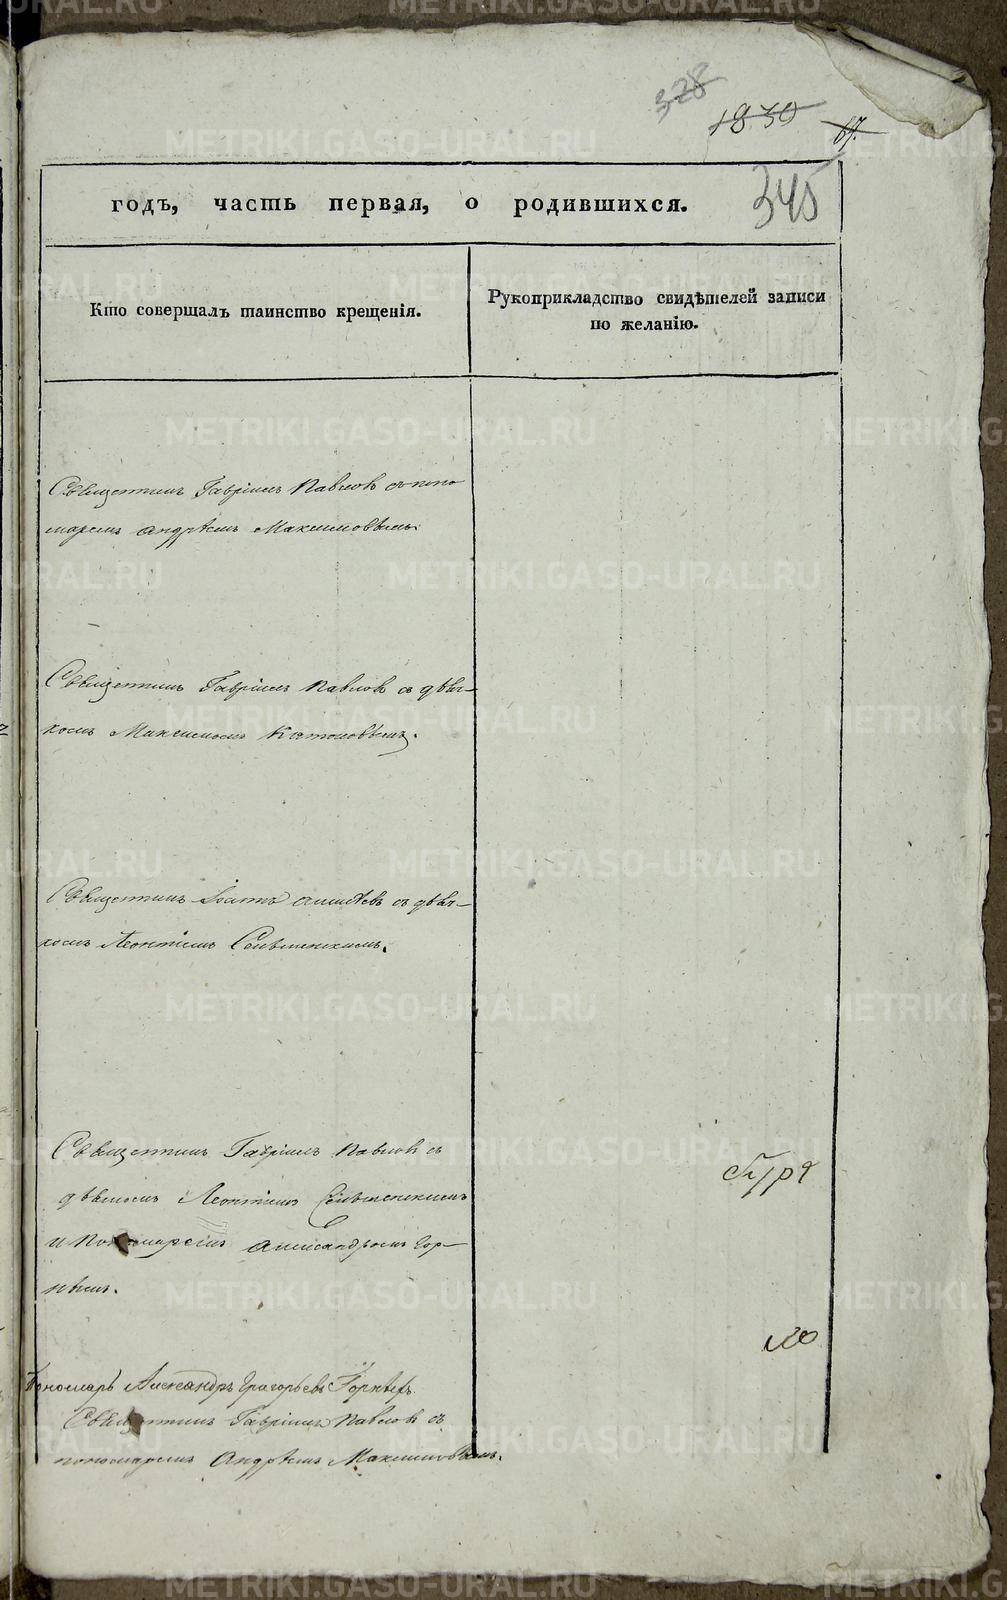 328
1830
67.
345
годъ, часть первая, о родившихся.
Кто совершалъ таинство крещенія.
Рукоприкладство свидѣтелей записи
по желанію.
Священникъ Гавріилъ Павловъ съ поно
маремъ Андрѣемъ Максимовымъ
Священникъ Гавріилъ Павловъ съ дьяч-
комъ Максимомъ
Священникъ Іоаннъ съ дьяч-
комъ Леонтіемъ
Священникъ Гавріилъ Павловъ съ
Леонтіемъ
и пономаремъ Александромъ Гор-
нымъ.
Пономарь Александръ Григорьевъ
Священникъ Гавріилъ Павловъ съ
пономаремъ Андрѣемъ Максимовымъ.
METRIKI.GASO-URAL.RU